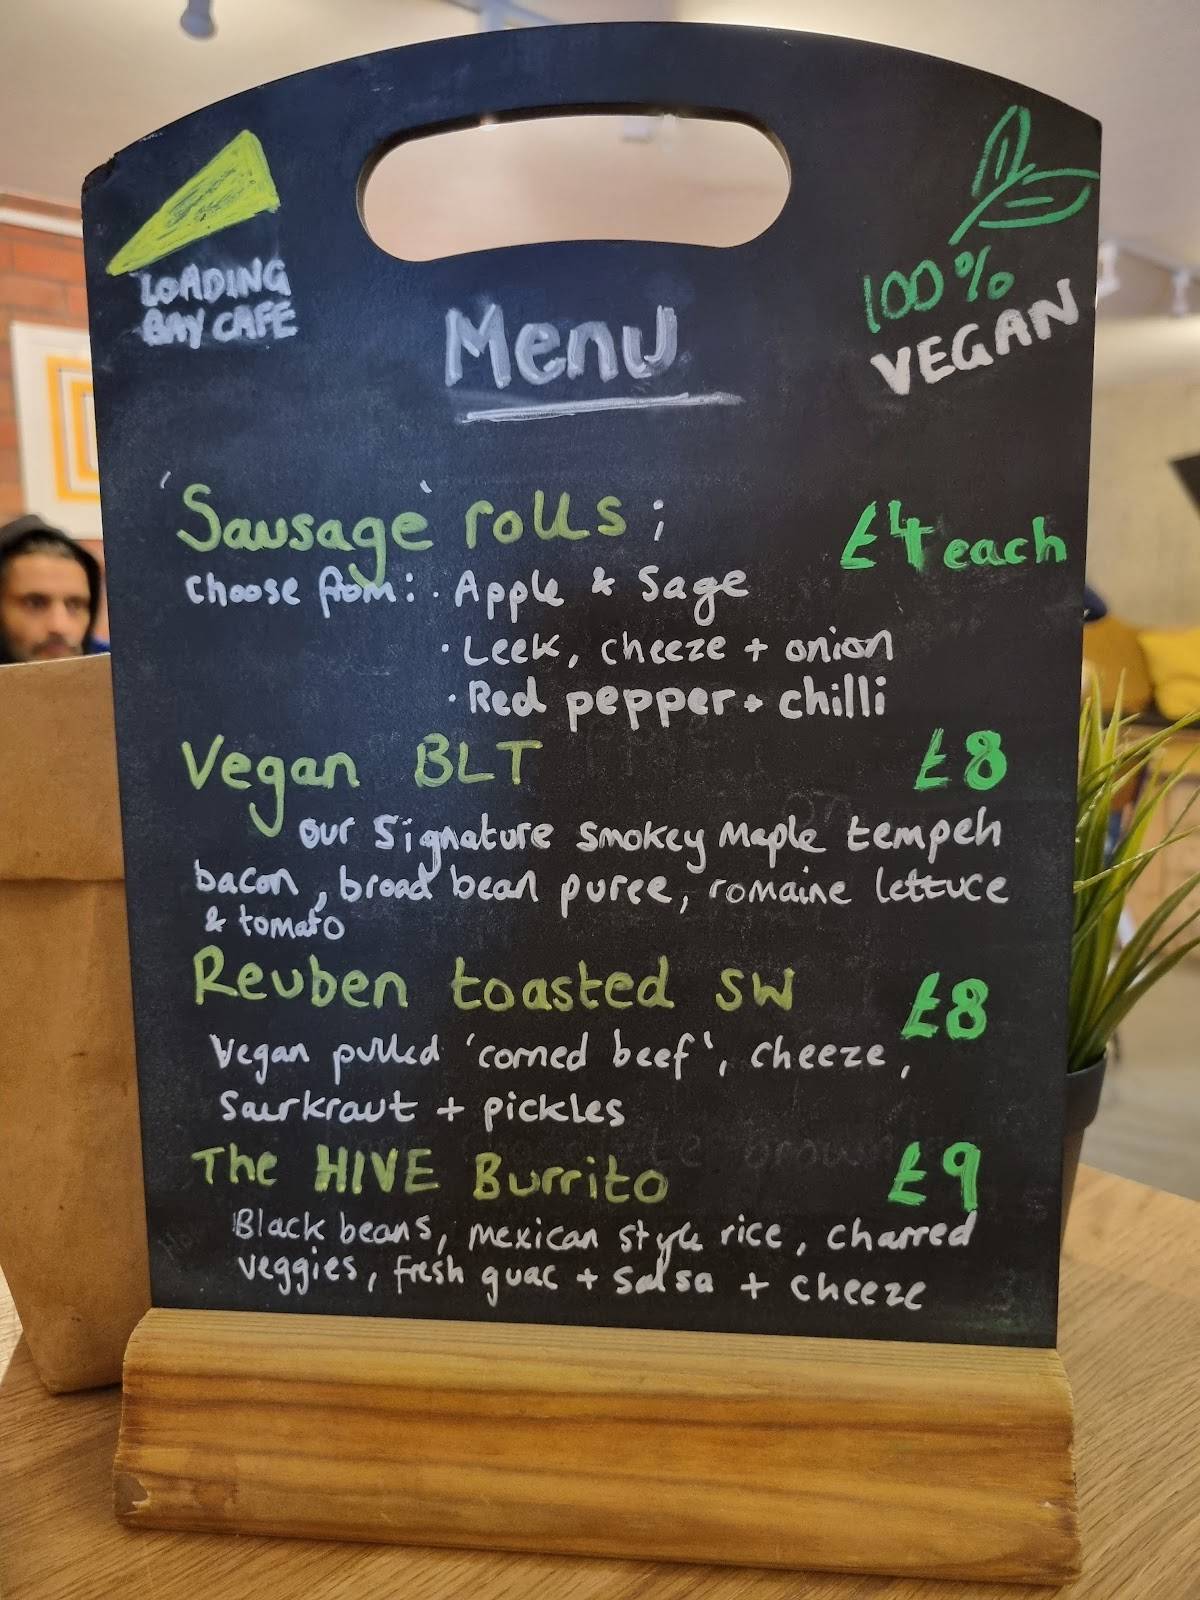 LOADING
BAY CAFE
100%
VEGAN
Menu
'Sausage' rolls;
£4 each
Choose from: · Apple & Sage
· Leek, cheeze + onion
· Red pepper + chilli
Vegan BLT
£8
Our Signature Smokey Maple tempeh
bacon, broad bean puree, romaine lettuce
& tomato
Reuben toasted SW
£8
Vegan pulled 'corned beef', cheeze,
Saurkraut + pickles
The HIVE Burrito
£9
Black beans, mexican style rice, charred
veggies, fresh guac + salsa + cheeze